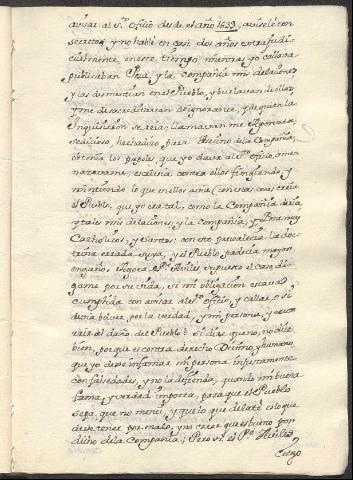 avisar al S.to Oficio desde el año 1639, avisele con
secreto, y no hablè en casi dos años extrajudi-
cialmente, en este tiempo, mientras yo callava
publicaban Poza, y la Compañia mis delaciones
y las desmentian en el Pueblo, y burlavan de ellas,
y me desacreditavan de ignorante, y de quien la
Inquisicion se reia; llamavanme
sedicioso, hechadizo para de la Compañia,
obtenia los papeles, que yo dava al S.to Oficio, ame-
nazavanme, escrivia contra ellos fingiendo, y
mintiendo lo que en ellos avia creia
el Pueblo, que yo era tal, como la Compañia decia
y tales mis delaciones, y la Compañia, y Poza muy
Catholicos, y Santos: con esto prevalecia la doc-
trina errada suya, y el Pueblo padecia mayor
engaño. Agora P.e Aviles supuesto el caso, di-
game por su vida, si mi obligacion estava
cumplida con avisar al S.to Oficio, y callar, o si
devia bolver por la verdad, y mi persona, y
del daño del Pueblo? Si dice que no, no dice
bien, porque es contra derecho Divino, y humano
que yo dexe infamar mi persona injustamente
con falsedades, y no la defienda, quando mi buena
fama, y verdad importa, para que el Pueblo
sepa, que no mentì, y que lo que delatè es lo que
deve tener por malo, y no creer que es bueno por
dicho de la Compañia; Pero si el P.e Aviles
ciego